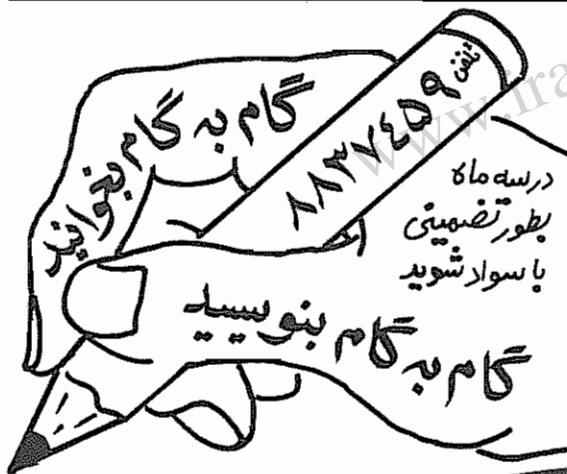 گام به گام بخوانید
تلفن ۸۸۳۷۴۵۹
در سه ماه
بطور تضمینی
با سواد شوید
گام به گام بنویسید